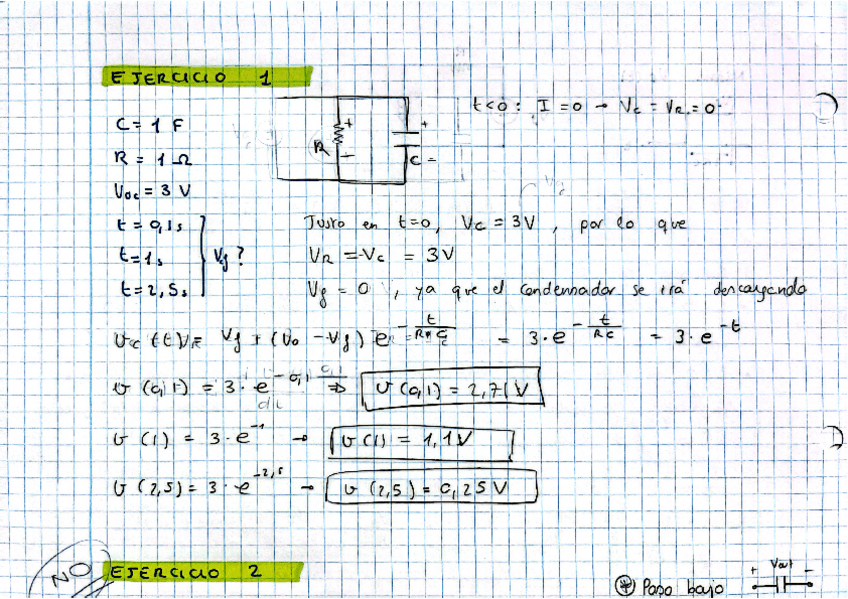 EJERCICIO 1
t<0: I=0 → Vc = VR = 0
C = 1 F
R
C
R = 1 Ω
Voc = 3 V
t = 0,1s
t = 1s
t = 2,5s
Vf?
Justo en t=0, Vc = 3V, por lo que
VR = Vc = 3V
Vf = 0, ya que el condensador se irá descargando
Vf + (Vo - Vf) e^-t/RC = 3·e^-t/RC = 3·e^-t
v(0,1) = 3·e^-0,1 ⇒ v(0,1) = 2,71V
v(1) = 3·e^-1 → v(1) = 1,1V
v(2,5) = 3·e^-2,5 → v(2,5) = 0,25V
NO
EJERCICIO 2
Paso bajo
+ Vout -